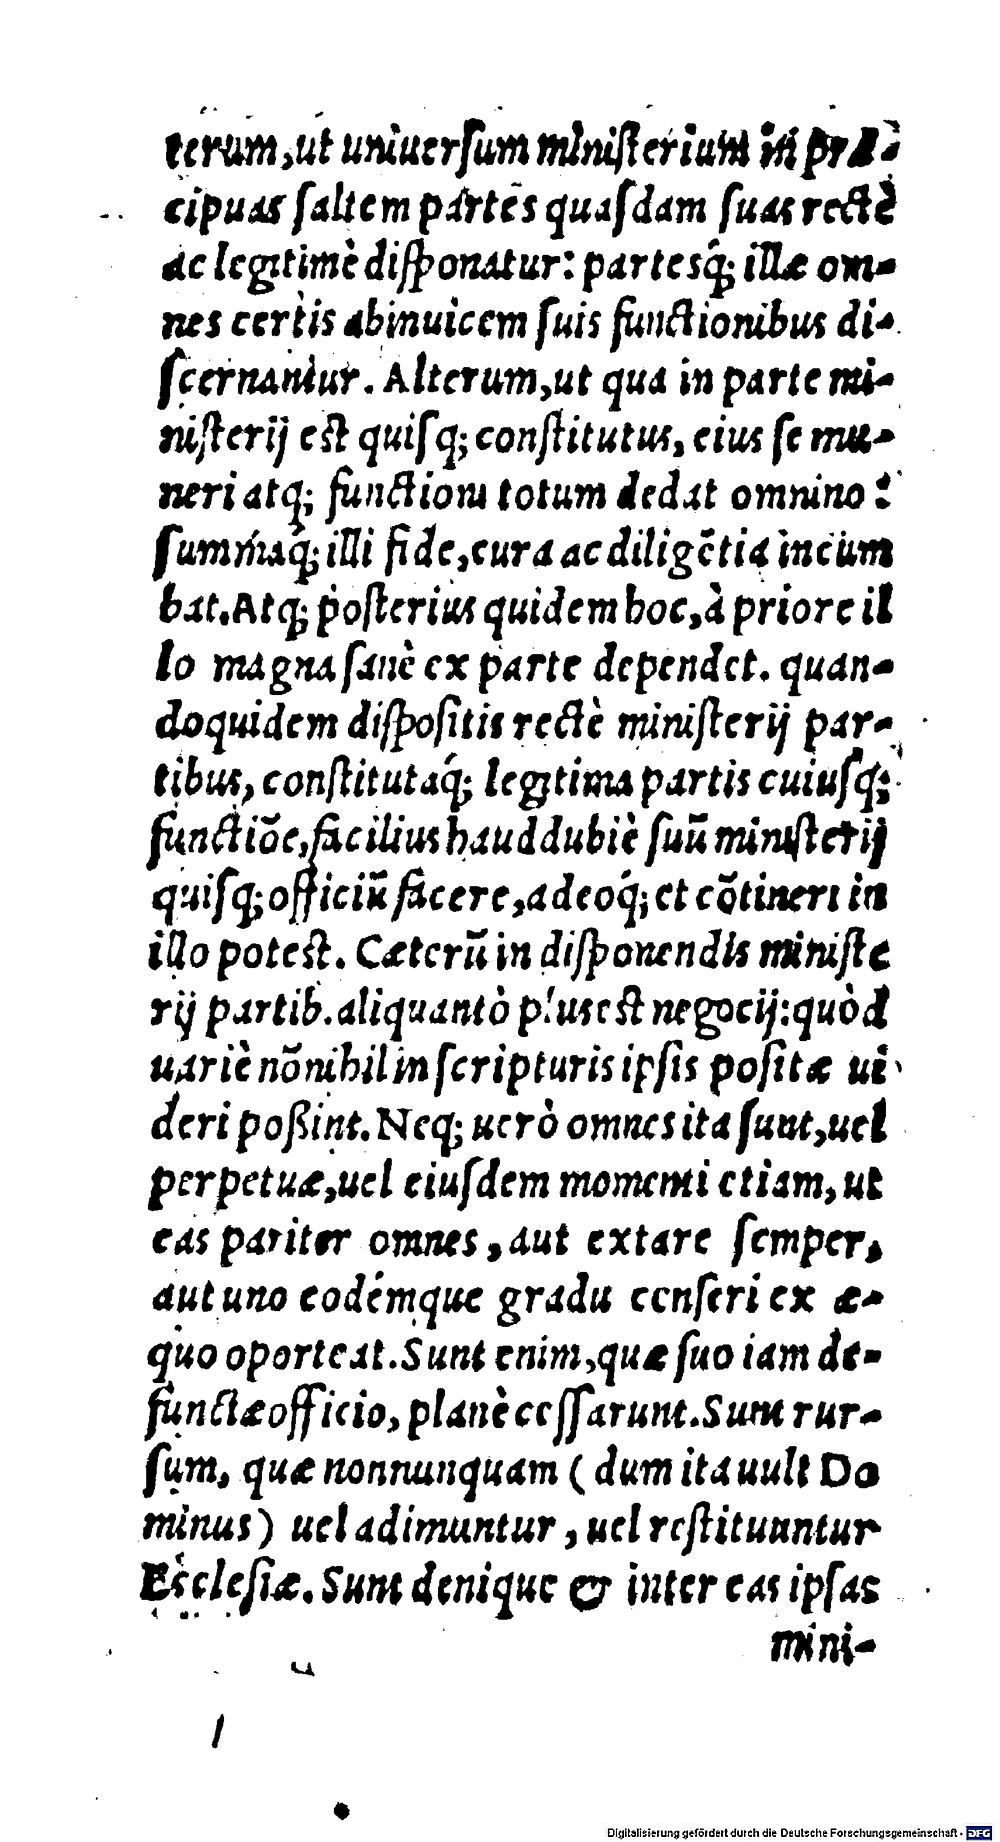 terum, ut uniuersum ministerium in præ-
cipuas saltem partes quasdam suas rectè
ac legitimè disponatur: partesq́; illæ om-
nes certis abinuicem suis functionibus di-
scernantur. Alterum, ut qua in parte mi-
nisterij est quisq; constitutus, eius se mu-
neri atq; functioni totum dedat omnino:
summaq́; illi fide, cura ac diligẽtia incum
bat. Atq; posterius quidem hoc, à priore il
lo magna sanè ex parte dependet. quan-
doquidem dispositis rectè ministerij par-
tibus, constitutaq́; legitima partis cuiusq;
functiõe, facilius haud dubiè suũ ministerij
quisq; officiũ facere, adeoq́; et cõtineri in
illo potest. Cæterũ in disponendis ministe
rij partib. aliquantò plus est negocij: quòd
uariè nõnihil in scripturis ipsis positæ ui
deri poßint. Neq; uerò omnes ita sunt, uel
perpetuæ, uel eiusdem momenti etiam, ut
eas pariter omnes, aut extare semper,
aut uno eodémque gradu censeri ex æ-
quo oporteat. Sunt enim, quæ suo iam de-
functæ officio, planè cessarunt. Sunt rur-
sum, quæ nonnunquam (dum ita uult Do
minus) uel adimuntur, uel restituuntur
Ecclesiæ. Sunt denique & inter eas ipsas
mini-
Digitalisierung gefördert durch die Deutsche Forschungsgemeinschaft - DFG